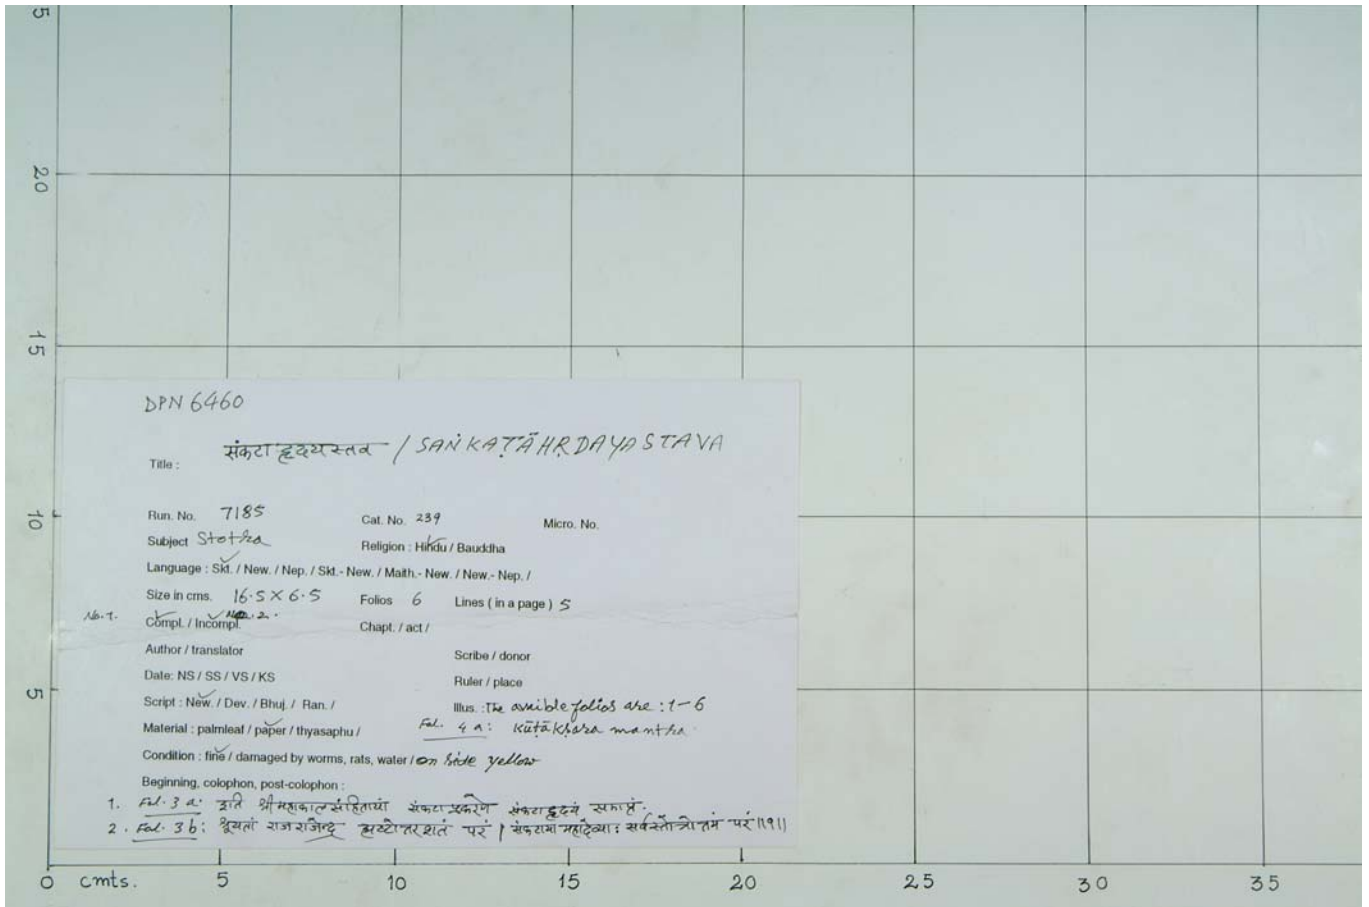 DPN 6460
Title : संकटा हृदयस्तव / SAṄKAṬĀHṚDAYASTAVA
Run. No. 7185 Cat. No. 239 Micro. No.
Subject Stotra Religion : Hindu / Bauddha
Language : Skt. / New. / Nep. / Skt.- New. / Maith.- New. / New.- Nep. /
Size in cms. 16.5 X 6.5 Folios 6 Lines ( in a page ) 5
No. 1. Compl. / Incompl. No. 2. Chapt. / act /
Author / translator Scribe / donor
Date: NS / SS / VS / KS Ruler / place
Script : New. / Dev. / Bhuj. / Ran. / Illus. : The avaible folios are : 1-6
Material : palmleaf / paper / thyasaphu / Fol. 4 a : Kūṭākṣara mantra
Condition : fine / damaged by worms, rats, water / on side yellow
Beginning, colophon, post-colophon :
1. Fol. 3 a : इति श्रीमहाकालसंहितायां संकटाप्रकरणे संकटाहृदयं समाप्तं.
2. Fol. 3 b : श्रूयतां राजराजेन्द्र अष्टोत्तरशतं परं | संकटाया महादेव्याः सर्वस्तोत्रोत्तमं परं ॥१॥
25
20
15
10
5
0 cmts. 5 10 15 20 25 30 35